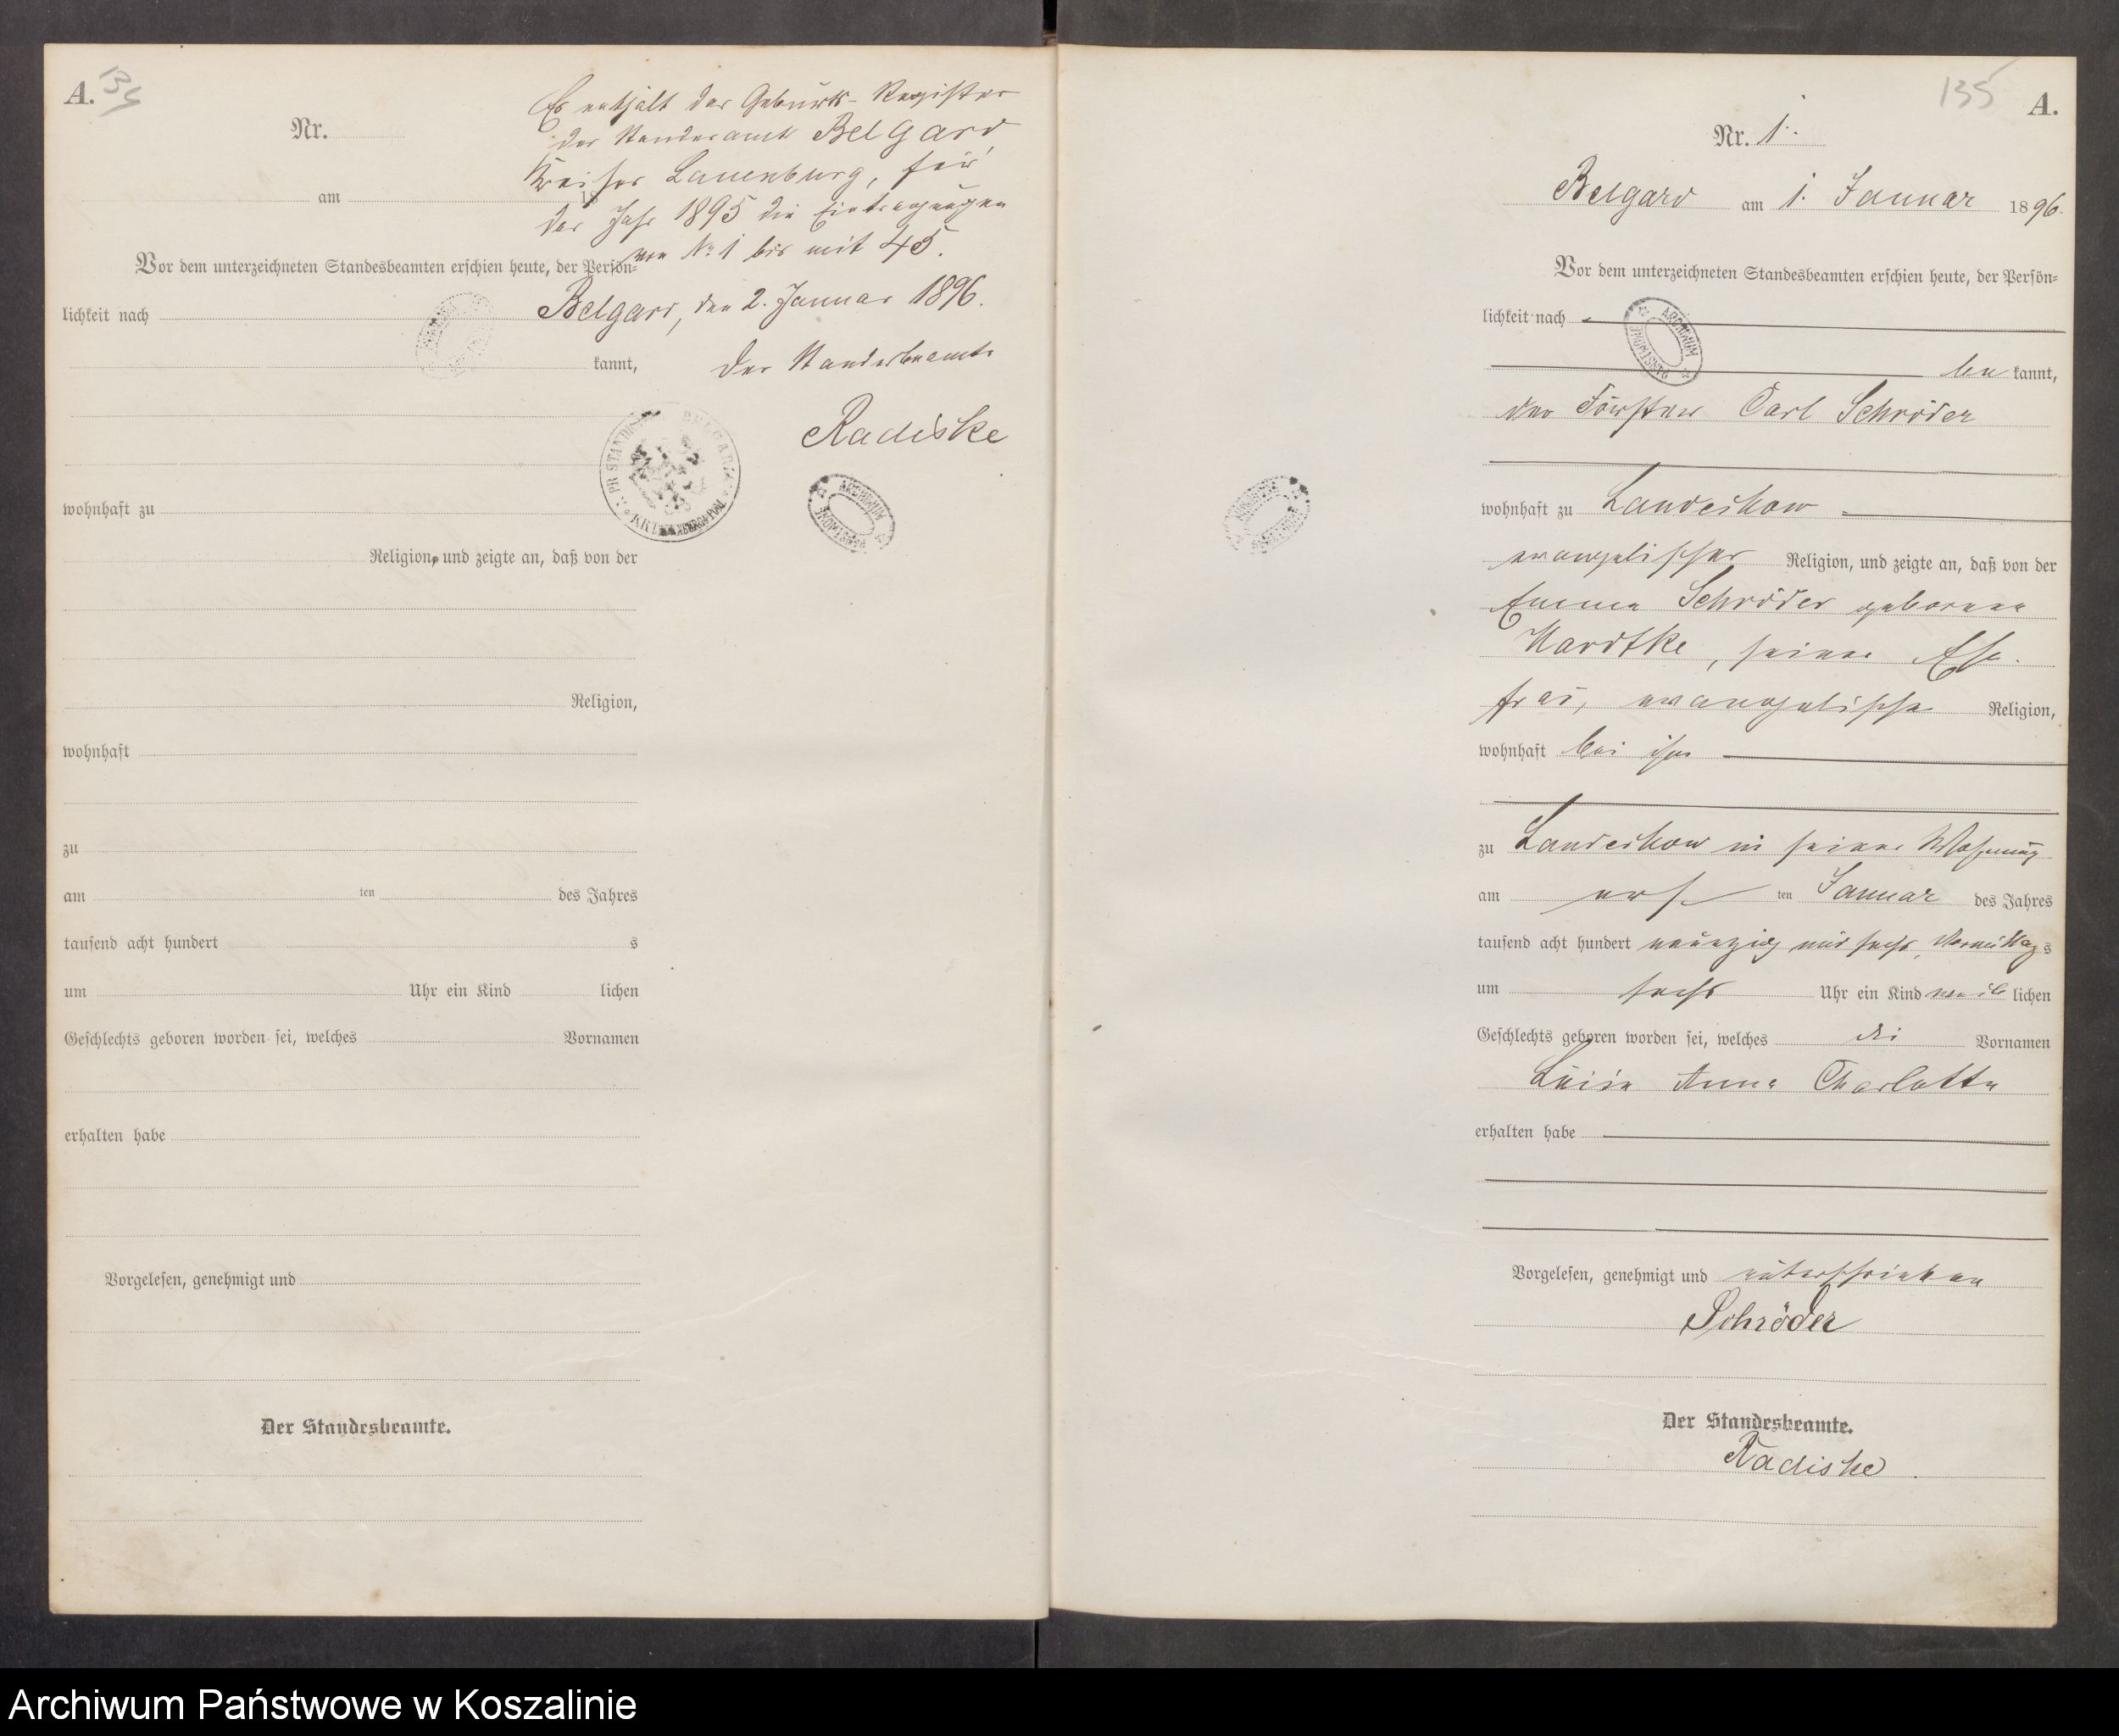 A.
Nr.
am 18
Vor dem unterzeichneten Standesbeamten erschien heute, der Persön=
lichkeit nach
kannt,
wohnhaft zu
Religion, und zeigte an, daß von der
Religion,
wohnhaft
zu
am ten des Jahres
tausend acht hundert s
um Uhr ein Kind lichen
Geschlechts geboren worden sei, welches Vornamen
erhalten habe
Vorgelesen, genehmigt und
Der Standesbeamte.
Es enthält das Geburts-Register
des Standesamts Belgard,
Kreises Lauenburg, für
das Jahr 1895 die Eintragungen
von No 1 bis mit 45.
Belgard, den 2. Januar 1896.
Der Standesbeamte
Radiske
ARCHIWUM
PAŃSTWOWE
135 A.
Nr. 1.
Belgard am 1. Januar 1896.
Vor dem unterzeichneten Standesbeamten erschien heute, der Persön=
lichkeit nach
ARCHIWUM
PAŃSTWOWE
be kannt,
der Förster Carl Schröder
wohnhaft zu Landechow
evangelischer Religion, und zeigte an, daß von der
Emma Schröder geborenen
seiner Ehe-
frau, evangelischer Religion,
wohnhaft bei ihm
zu Landechow in seiner Wohnung
am ers ten Januar des Jahres
tausend acht hundert neunzig und sechs, Vormittags
um sechs Uhr ein Kind weib lichen
Geschlechts geboren worden sei, welches die Vornamen
Luise Anna Charlotte
erhalten habe
Vorgelesen, genehmigt und unterschrieben
Schröder
Der Standesbeamte.
Radiske.
Archiwum Państwowe w Koszalinie